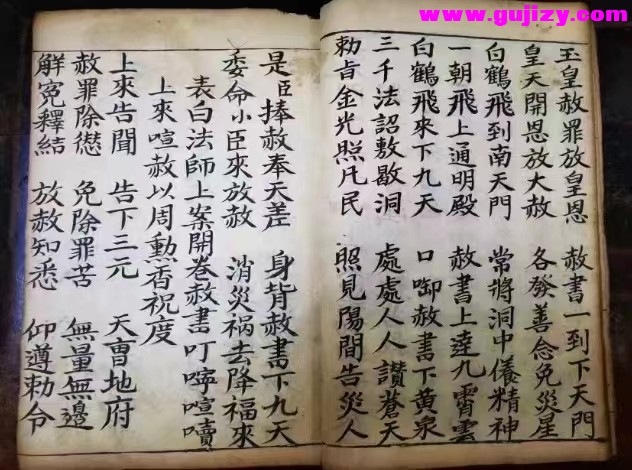 www.gujizy.com
玉皇赦罪放皇恩 赦書一到下天門
皇天開恩放大赦 各發善念免災星
白鶴飛到南天門 常將洞中儀精神
一朝飛上通明殿 赦書上達九霄雲
白鶴飛來下九天 口啣赦書下黃泉
三千法詔敷歇洞 處處人人讚蒼天
勅旨金光照凡民 照見陽間告災人
是臣捧赦奉天差 身背赦書下九天
委命小臣來放赦 消災禍去降福來
表白法師上案開卷赦書叮嚀喧讀
上來喧赦以周動香祝度
上來告聞 告下三元 天曹地府
赦罪除愆 免除罪苦 無量無邊
解冤釋結 放赦知悉 仰遵勅令